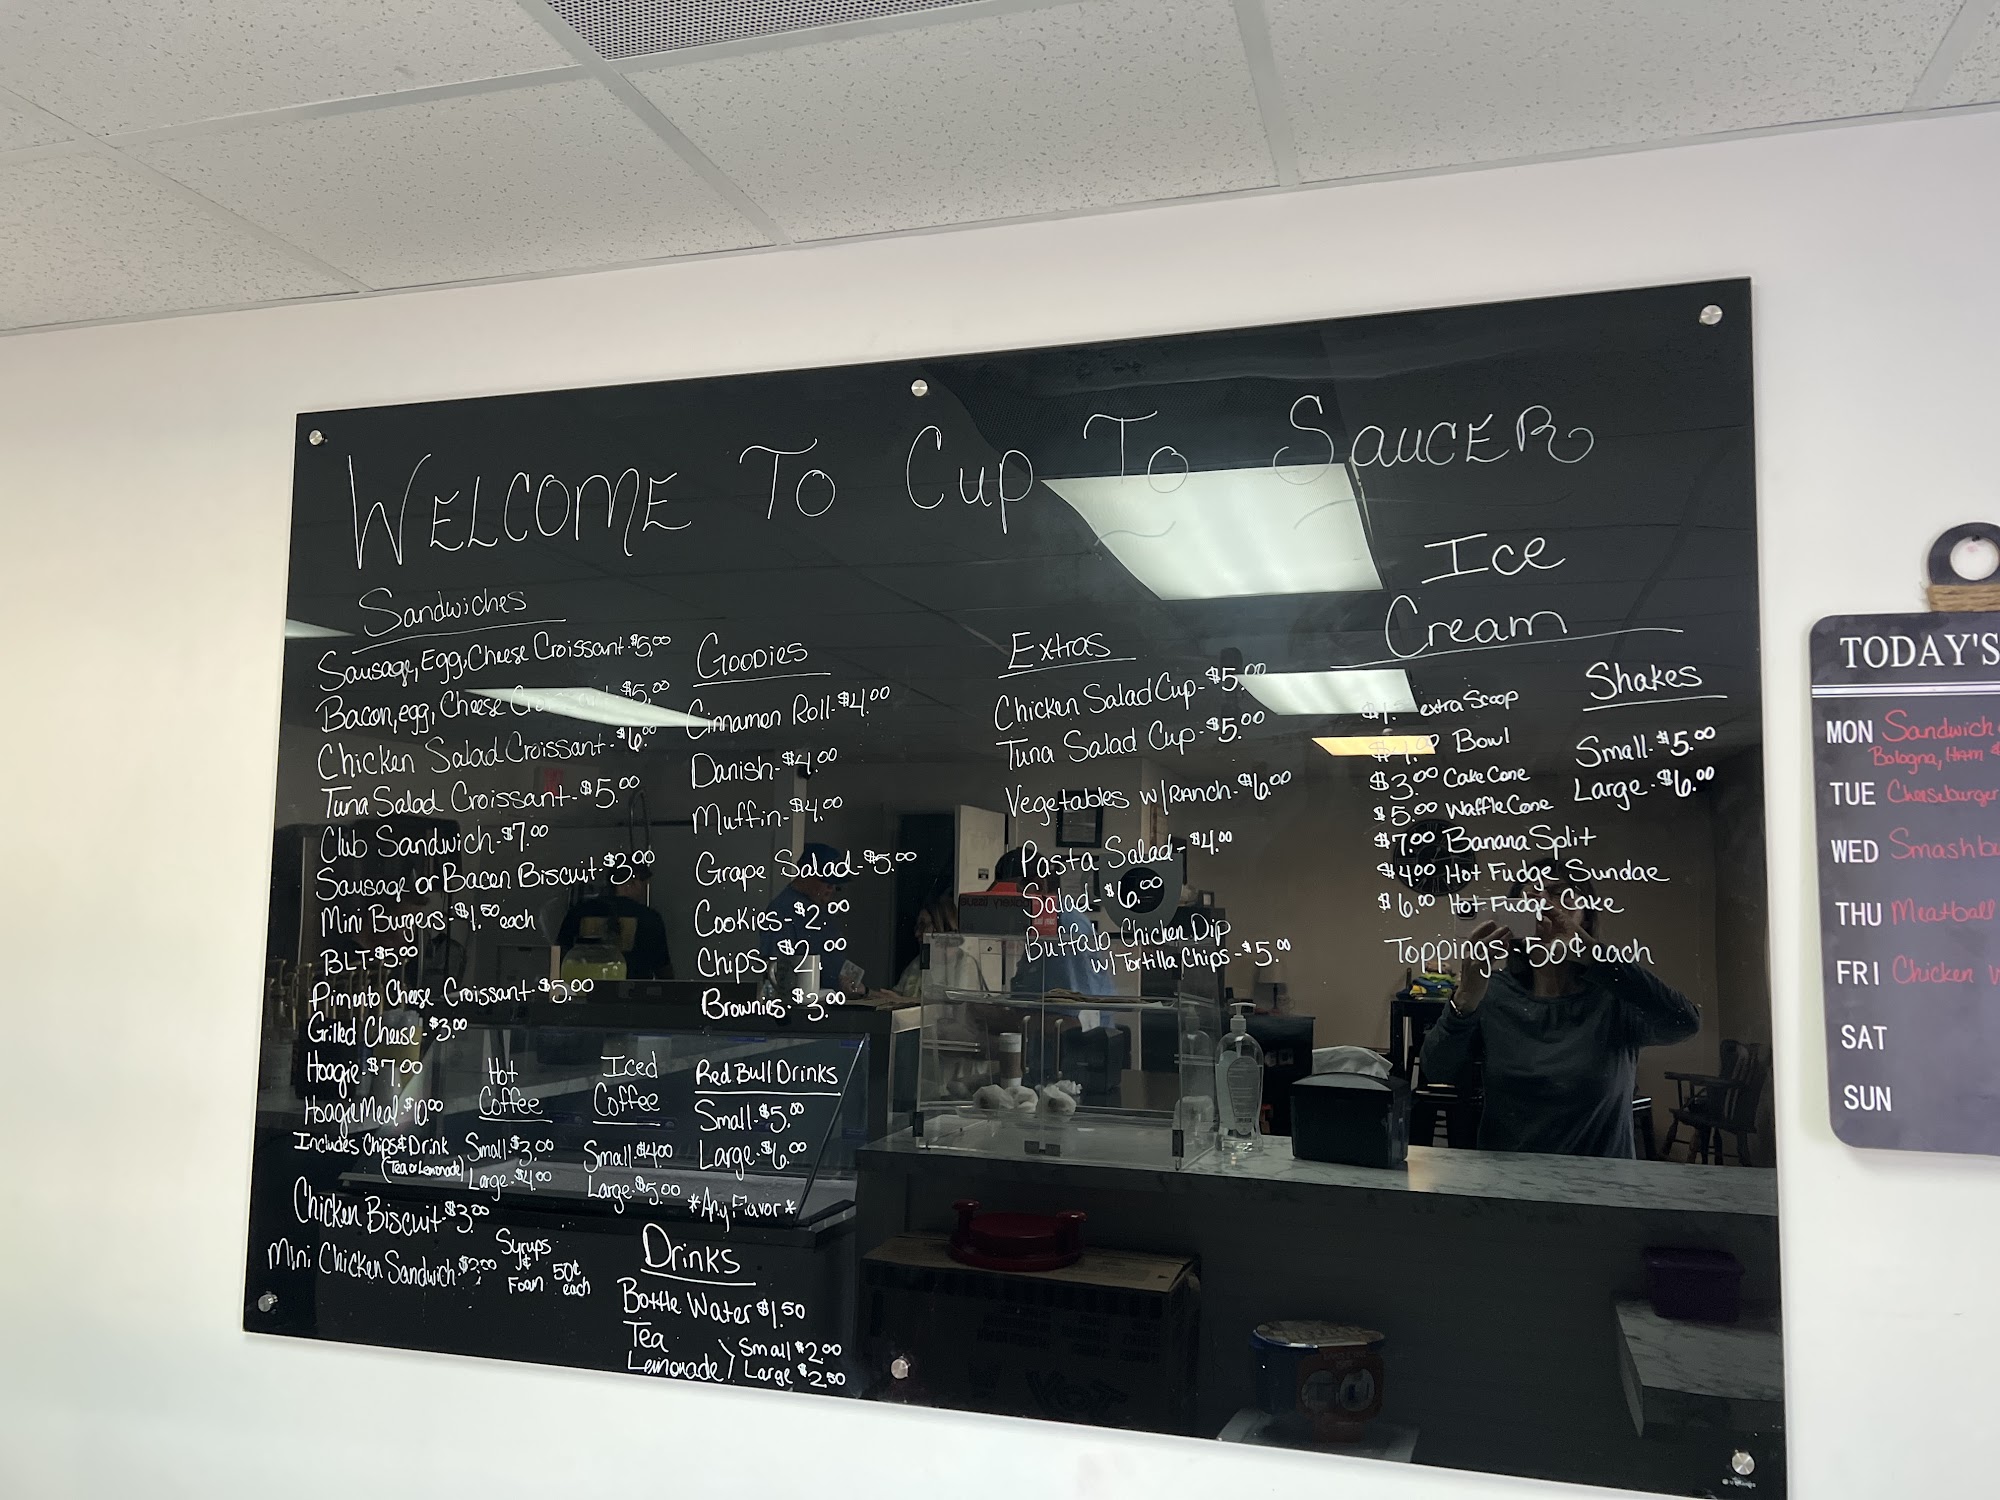 WELCOME To Cup To SAUCER
Sandwiches
Sausage, Egg, Cheese Croissant-$5.00
Bacon, egg, Cheese $5.00
Chicken Salad Croissant-$6.00
Tuna Salad Croissant-$5.00
Club Sandwich-$7.00
Sausage or Bacon Biscuit-$3.00
Mini Burgers-$1.50 each
BLT-$5.00
Pimento Cheese Croissant-$5.00
Grilled Cheese-$3.00
Hoagie-$7.00
Hoagie Meal-$10.00
Includes Chips & Drink
(Tea or Lemonade)
Chicken Biscuit-$3.00
Mini Chicken Sandwich-
Hot
Coffee
Small-$3.00
Large-$4.00
Syrups
&
Foam 50¢
each
Iced
Coffee
Small-$4.00
Large-$5.00
Goodies
Cinnamon Roll-$4.00
Danish-$4.00
Muffin-$4.00
Grape Salad-$5.00
Cookies-$2.00
Chips-$2.00
Brownies-$3.00
Red Bull Drinks
Small-$5.00
Large-$6.00
*Any Flavor*
Drinks
Bottle Water $1.50
Tea
Lemonade
Small $2.00
Large $2.50
Extras
Chicken Salad Cup-$5.00
Tuna Salad Cup-$5.00
Vegetables w/RANCH-$6.00
Pasta Salad-$4.00
Salad-$6.00
Buffalo Chicken Dip
w/Tortilla Chips-$5.00
Ice
Cream
extra Scoop
Bowl
$3.00 Cake Cone
$5.00 Waffle Cone
$7.00 Banana Split
$4.00 Hot Fudge Sundae
$6.00 Hot Fudge Cake
Toppings-50¢ each
Shakes
Small-$5.00
Large-$6.00
TODAY'S
MON Sandwich
Bologna, Ham &
TUE Cheeseburger
WED
THU Meatball
FRI Chicken
SAT
SUN